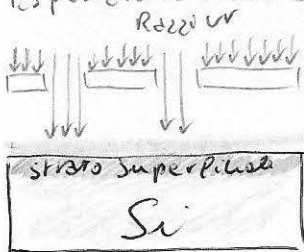 Raggi UV
strato superficiale
Si